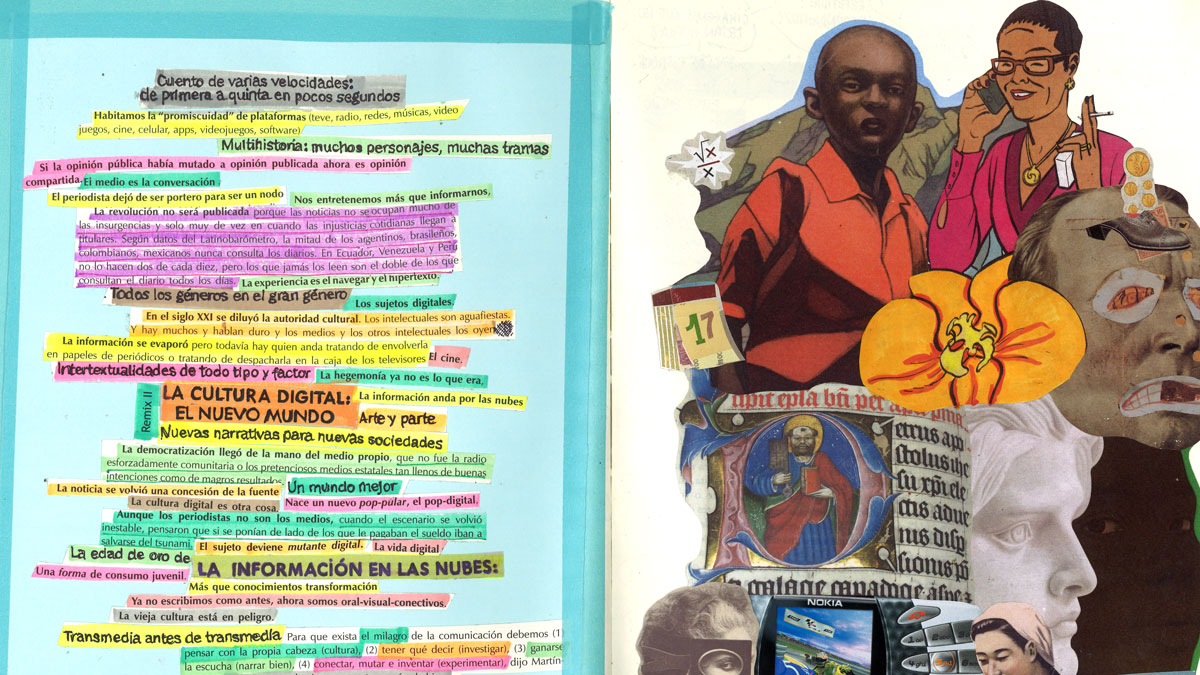 Cuento de varias velocidades:
de primera a quinta en pocos segundos
Habitamos la “promiscuidad” de plataformas (teve, radio, redes, músicas, video
juegos, cine, celular, apps, videojuegos, software)
Multihistoria: muchos personajes, muchas tramas
Si la opinión pública había mutado a opinión publicada ahora es opinión
compartida. El medio es la conversación
El periodista dejó de ser portero para ser un nodo
Nos entretenemos más que informarnos,
La revolución no será publicada porque las noticias no se ocupan mucho de
las insurgencias y solo muy de vez en cuando las injusticias cotidianas llegan a
titulares. Según datos del Latinobarómetro, la mitad de los argentinos, brasileños,
colombianos, mexicanos nunca consulta los diarios. En Ecuador, Venezuela y Perú
no lo hacen dos de cada diez, pero los que jamás los leen son el doble de los que
consultan el diario todos los días. La experiencia es el navegar y el hipertexto.
Todos los géneros en el gran género
Los sujetos digitales.
En el siglo XXI se diluyó la autoridad cultural. Los intelectuales son aguafiestas.
Y hay muchos y hablan duro y los medios y los otros intelectuales los oyen
La información se evaporó pero todavía hay quien anda tratando de envolverla
en papeles de periódicos o tratando de despacharla en la caja de los televisores
El cine.
Intertextualidades de todo tipo y factor
La hegemonía ya no es lo que era,
Remix II
LA CULTURA DIGITAL:
EL NUEVO MUNDO
La información anda por las nubes
Arte y parte
Nuevas narrativas para nuevas sociedades
La democratización llegó de la mano del medio propio, que no fue la radio
esforzadamente comunitaria o los pretenciosos medios estatales tan llenos de buenas
intenciones como de magros resultados
Un mundo mejor
La noticia se volvió una concesión de la fuente
La cultura digital es otra cosa.
Nace un nuevo pop-pular, el pop-digital.
Aunque los periodistas no son los medios, cuando el escenario se volvió
inestable, pensaron que si se ponían de lado de los que le pagaban el sueldo iban a
salvarse del tsunami.
El sujeto deviene mutante digital.
La vida digital
La edad de oro de
LA INFORMACIÓN EN LAS NUBES:
Una forma de consumo juvenil.
Más que conocimientos transformación
Ya no escribimos como antes, ahora somos oral-visual-conectivos.
La vieja cultura está en peligro.
Transmedia antes de transmedia
Para que exista el milagro de la comunicación debemos (1)
pensar con la propia cabeza (cultura), (2) tener qué decir (investigar), (3) ganarse
la escucha (narrar bien), (4) conectar, mutar e inventar (experimentar), dijo Martín
√x
x
17
etrus apo
stolus ihe
NOKIA